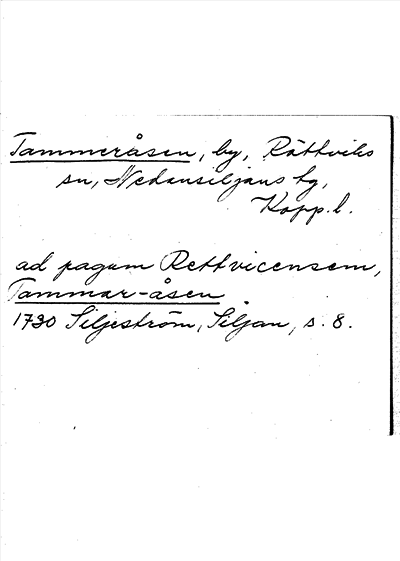 Tammeråsen, by, Rättviks
sn, Nedansiljans tg,
Kopp.l.
ad pagum Rettvicensem,
Tammar-åsen
1730 Siljeström, Siljan, s. 8.